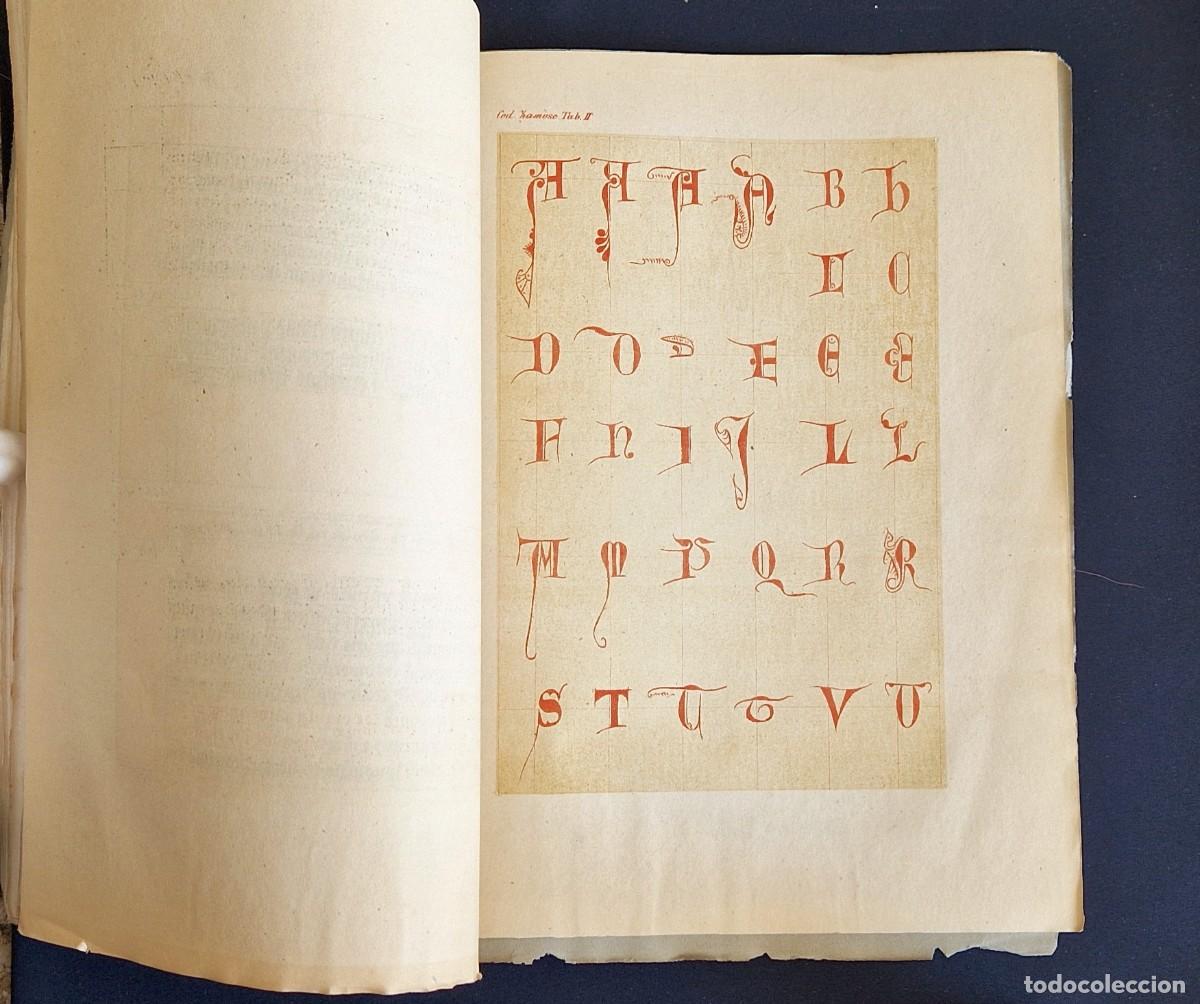 Cod. Zamosc. Tab. II
A A A A B b
C C
D D D E E E
F h I J. L L
M M P Q R R
S T T T V U
todocoleccion